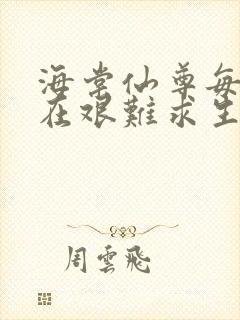 海棠仙尊每
在艰難求生
周雲飛